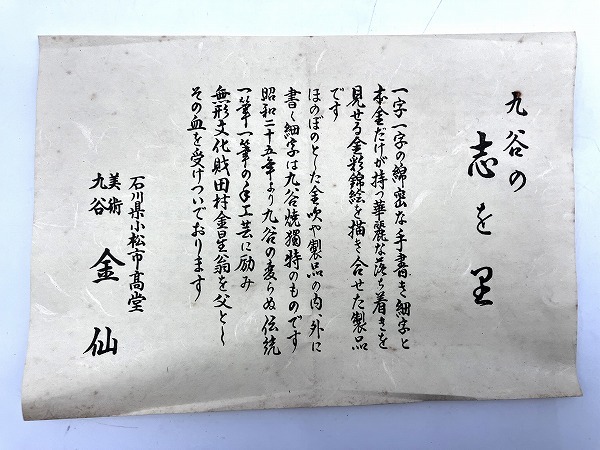 九谷の
志を里
一字一字の綿密な手書き細字と
本金だけが持つ華麗な落ち着きを
見せる金彩錦絵を描き合せた製品
です
ほのぼのとした金吹や製品の内、外に
書く細字は九谷焼獨特のものです
昭和二十五年より九谷の変らぬ伝統
一筆一筆の手工芸に励み
無形文化財田村金星翁を父とし
その血を受けついでおります
石川県小松市高堂
美術
九谷
金仙